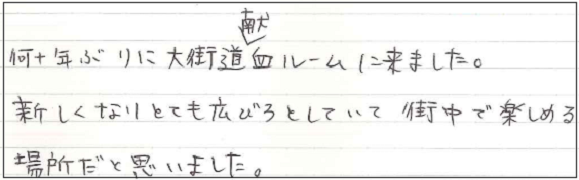 献
何十年ぶりに大街道血ルームに来ました。
新しくなりとても広びろとしていて街中で楽しめる
場所だと思いました。